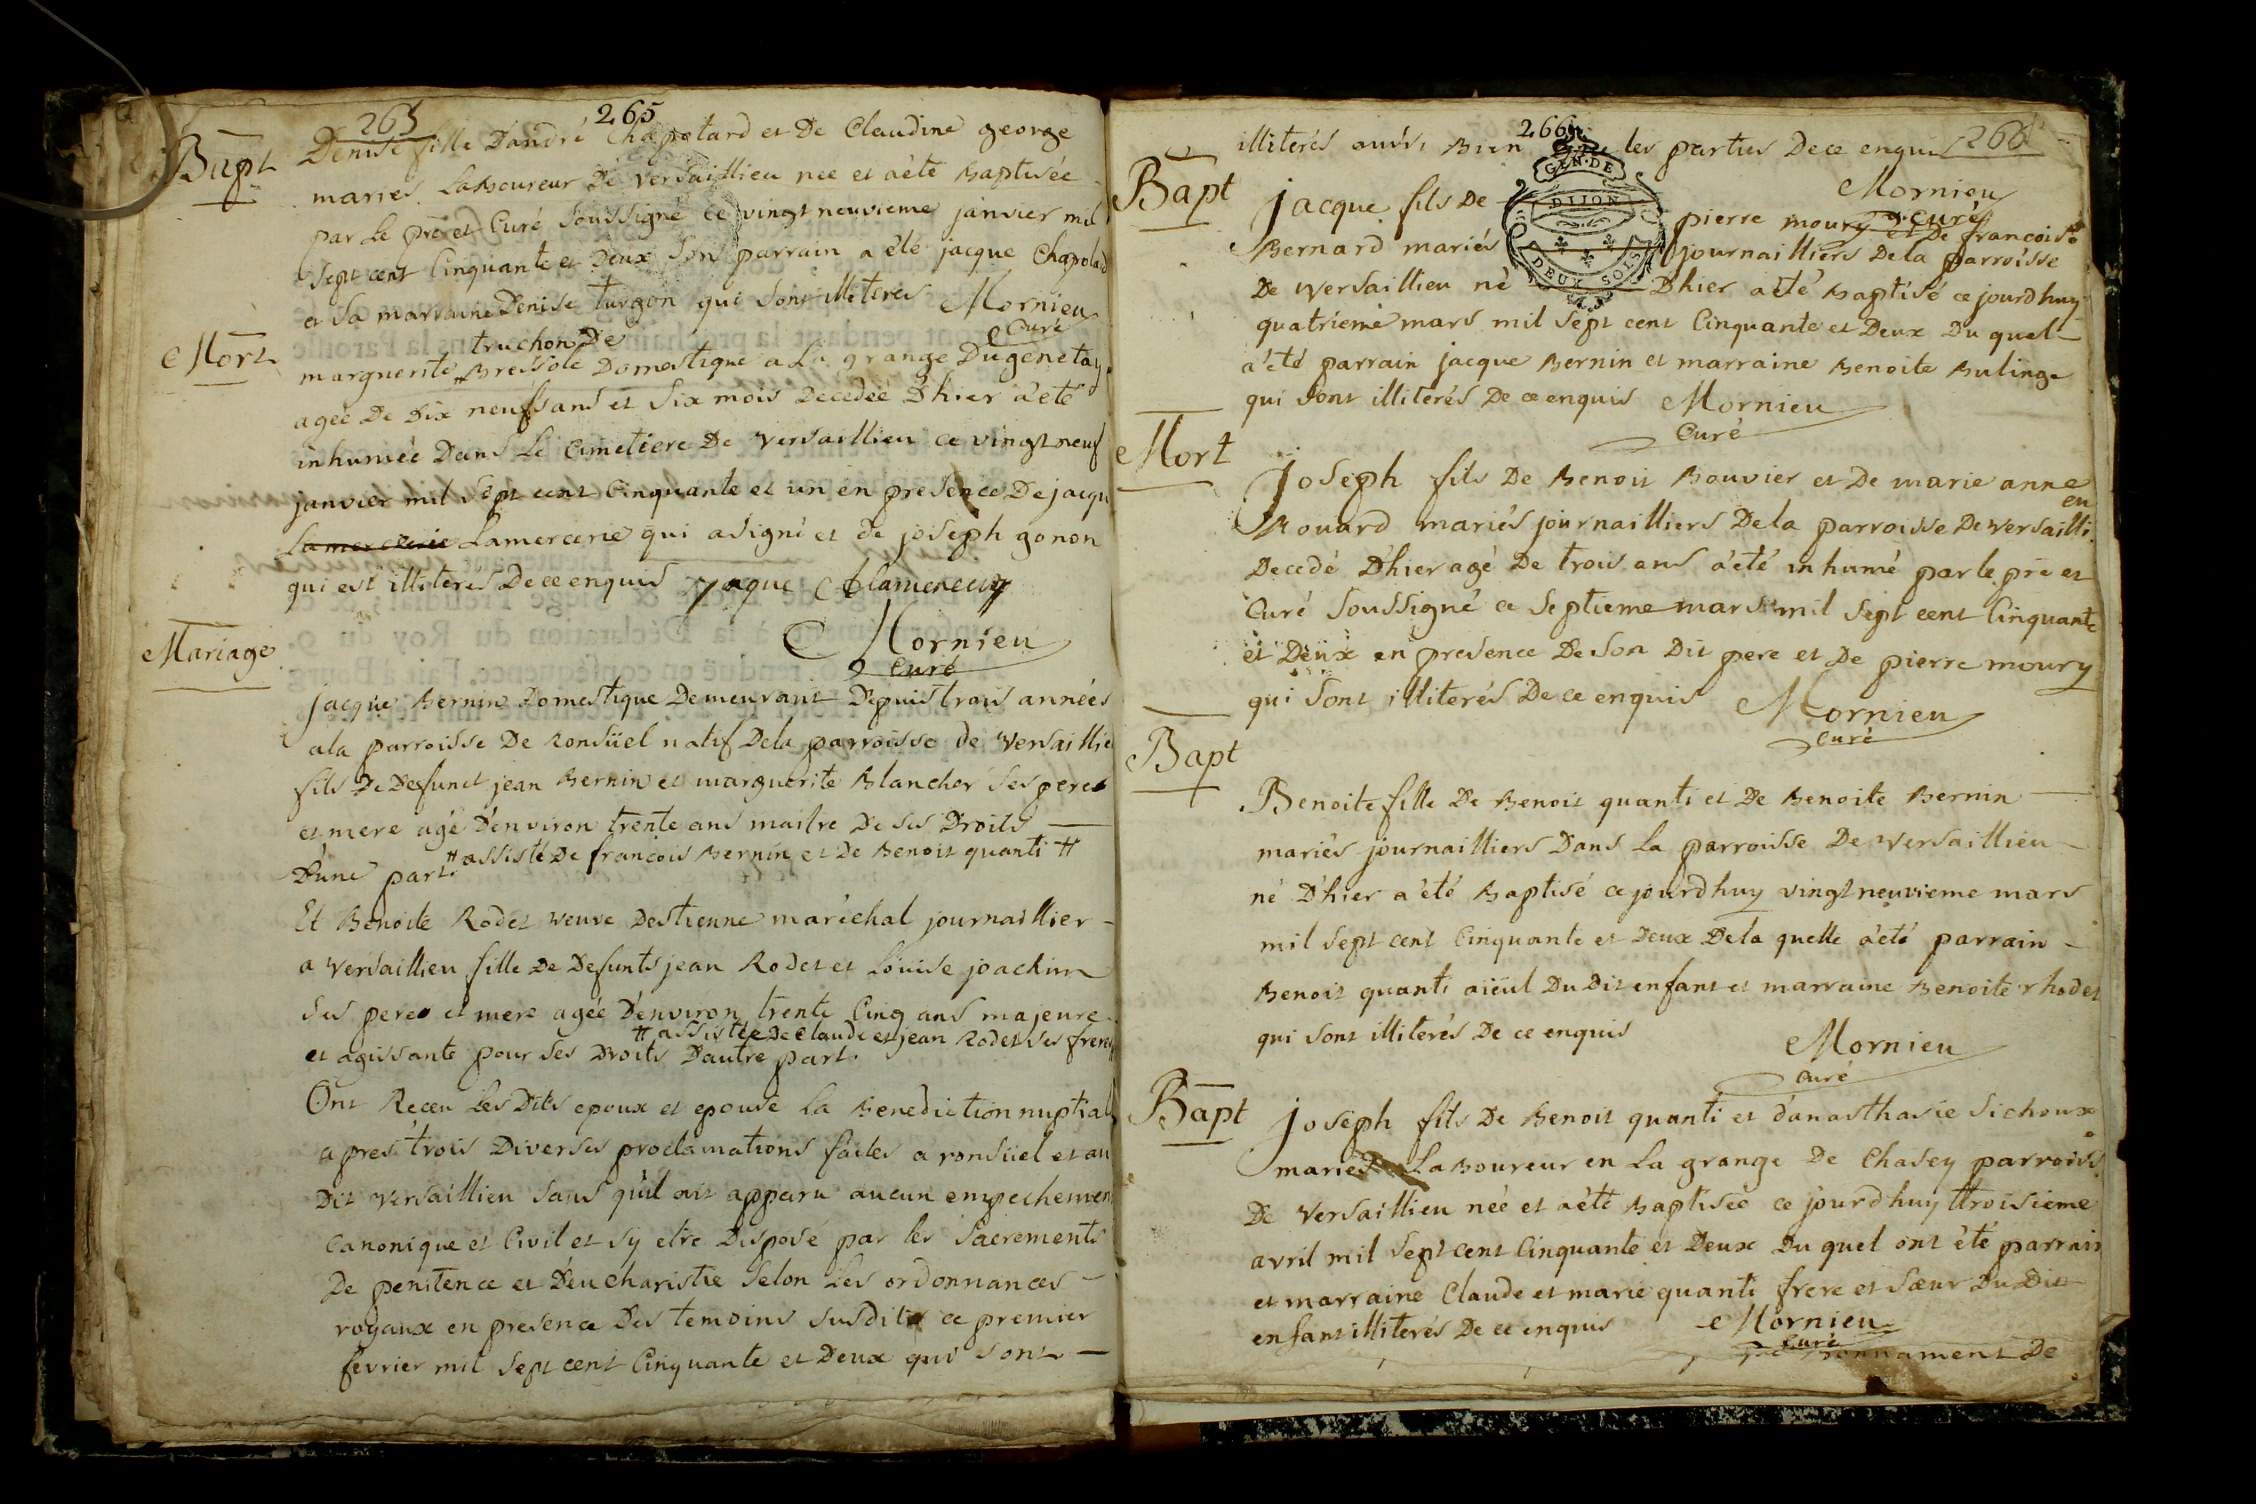 265
265
Bapt
Denise fille D'andré Chapotard et De Claudine george
mariés Laboureur De Versaillieu nee et aété Baptisée
par Le pre et Curé Soussigné ce vingt neuvieme janvier mil
Sept cent Cinquante et Deux Son parrain a été jacque Chapotard
et Sa marraine Denise turgon qui Sont illiterés Mornieu
Curé
Mort
truchon De
marguerite Bressole Domestique a La grange Dugenetay
agée De Dix neufs ans et Six mois Decedée D'hier a'été
inhumée Dans Le Cimetiere De Versaillieu ce vingt neuf
janvier mil Sept cent Cinquante et un en presence De jacqu
Lamercerie Lamercerie qui asigné et de joseph gonon
qui est illiteres De ce enquis jaque Lamercery
Mornieu
Curé
Mariage
jacque Bernin Domestique Demeurant Depuis trois années
ala parroisse De Ronsüel natif Dela parroisse de Versaillie
fils De Defunct jean Bernin et marguerite Blancher Ses peres
et mere agé D'environ trente ans maitre De Ses Droits
D'une part. # assisté De francois Bernin et De Benoit quanti #
Et Benoite Rodet veuve Destienne maréchal journaillier
a Versaillieu fille De Defunts jean Rodet et Loüise joackim
Ses peres et mere agée D'environ trente Cinq ans majeure
# assistée De Claude et jean Rodet Ses freres
et agissante pour Ses Droits Dautre part.
Ont Receu Les Dits epoux et epouse La Benediction nuptial
apres trois Diverses proclamations faites a ronsüel et au
Dit Versaillieu Sans qu'il ait apparu aucun empechemen
Canonique et Civil et Sy etre Disposé par les Sacrements
De penitence et D'eucharistie Selon Les ordonnances
royaux en presence Des temoins susdits ce premier
fevrier mil Sept cent Cinquante et Deux qui Sont
266
266
illiterés aussi Bien que les parties De ce enquis
Mornieu
Curé
GEN. DE
DIJON
DEUX SOLS
Bapt
jacque fils De pierre moury et De francoise
Bernard mariés journailliers De la parroisse
De Versaillieu né D'hier aété Baptisé ce jourdhuy
quatrieme mars mil Sept cent Cinquante et Deux Du quel
a'été parrain jacque Bernin et marraine Benoite Bulinge
qui Sont illiterés De ce enquis Mornieu
Curé
Mort
Joseph fils De Benoit Bouvier et De marie anne
Rouard mariés journailliers De la parroisse De Versailli
eu
Decedé D'hier agé De trois ans a'été inhumé par le pre et
Curé Soussigné ce Septieme mars mil Sept cent Cinquante
et Deux en presence De Son Dit pere et De pierre moury
qui Sont illiterés De ce enquis Mornieu
Curé
Bapt
Benoite fille De Benoit quanti et De Benoite Bernin
mariés journailliers Dans La parroisse De Versaillieu
né D'hier a'été Baptisé ce jourdhuy vingt neuvieme mars
mil Sept cent Cinquante et Deux De la quelle a'été parrain
Benoit quanti aiëul Du Dit enfant et marraine Benoite rhodet
qui Sont illiterés De ce enquis
Mornieu
Curé
Bapt
joseph fils De Benoit quanti et d'anasthasie Sichoux
mariés Laboureur en La grange De Chasey parroiss
De Versaillieu née et aété Baptisée ce jourdhuy ttroisieme
avril mil Sept cent Cinquante et Deux Du quel ont été parrain
et marraine Claude et marie quanti frere et Sœur Du Dit
enfant illiterés De ce enquis Mornieu
Curé
De